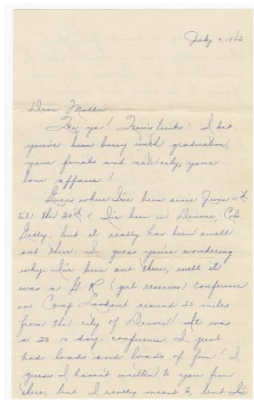 July 4, 1943
Dear Martha
Hi ya! Here's lucks! I bet
you've been busy with graduation,
your finals and society, your
love affairs!
Guess where I've been since June 16
till the 30th? I've been in Denver, Colo.
Golly, but it really has been swell
out there. I guess you're wondering
why I've been out there, well it
was a G R (girl reserves) conference
on Camp Lookout around 25 miles
from the city of Denver! It was
a 10 day conference. I just
had loads and loads of fun! I
guess I haven't written to you from
there, but I really meant to, but I'm